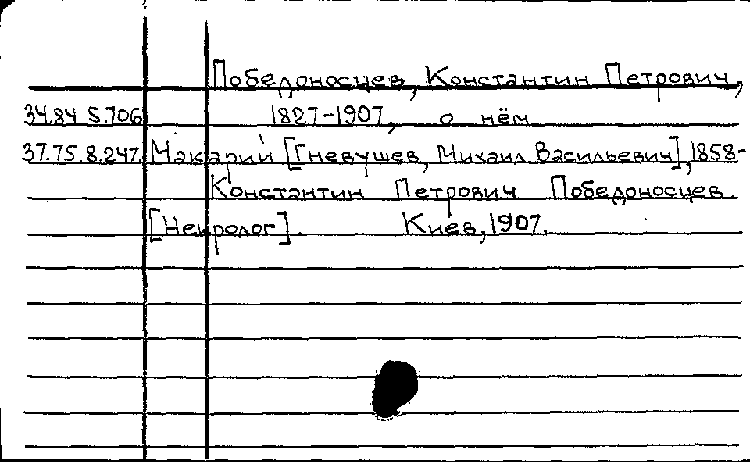 Победоносцев, Константин Петрович,
34.84 S.706 1827-1907, о нём
37.75.8.247. Макарий [Гневушев, Михаил Васильевич], 1858-
Константин Петрович Победоносцев.
[Некролог]. Киев, 1907.